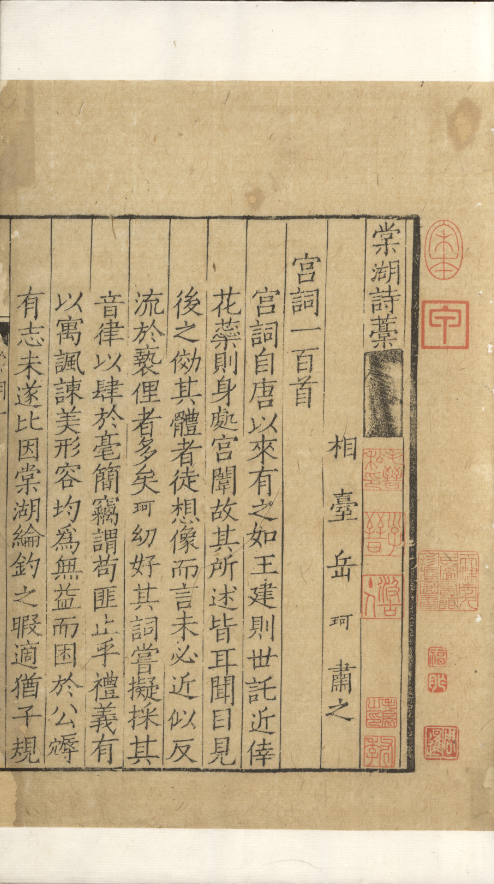 棠湖詩藁
相臺岳珂肅之
宮詞一百首
宮詞自唐以來有之如王建則世託近倖
花蘂則身處宮闈故其所述皆耳聞目見
後之効其體者徒想像而言未必近似反
流於褻俚者多矣珂幼好其詞嘗擬採其
音律以肆於毫簡竊謂苟匪止乎禮義有
以寓諷諫美形容均爲無益而困於公
有志未遂比因棠湖綸釣之暇適猶子規
宋本